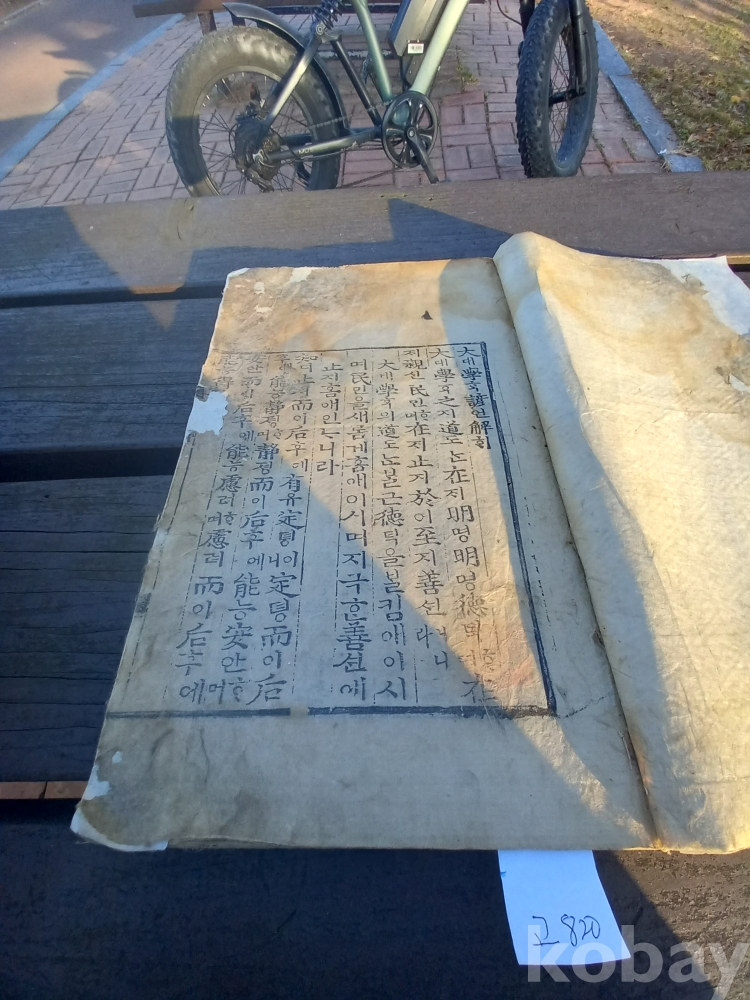 大대學ᄒᆞᆨ諺언解ᄒᆡ
大대學ᄒᆞᆨ之지道도ᄂᆞᆫ在ᄌᆡ明명明명德덕ᄒᆞ며在
ᄌᆡ親신民민ᄒᆞ며在ᄌᆡ止지於어至지善션이니라
大대學ᄒᆞᆨ의道도ᄂᆞᆫᄇᆞᆯ근德덕을ᄇᆞᆯ킴애이시
며民민을새롭게홈애이시며지극ᄒᆞᆫ善션에
止지홈애인ᄂᆞ니라
知디止지而이后후에有유定뎡이니定뎡而이后
후에能능靜졍ᄒᆞ며靜졍而이后후에能능安안ᄒᆞ며
安안而이后후에能능慮려ᄒᆞ며慮려而이后후에
고 820
kobay